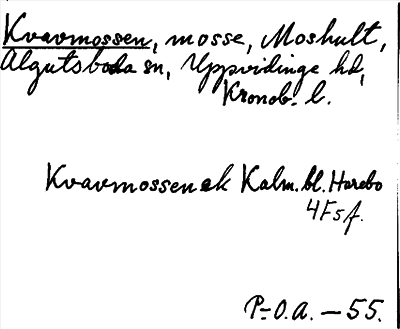 Kvavmossen, mosse, Moshult,
Algutsboda sn, Uppvidinge hd,
Kronob. l.
Kvavmossen ek Kalm. bl. Harebo
4F5f.
P-O.A. - 55.